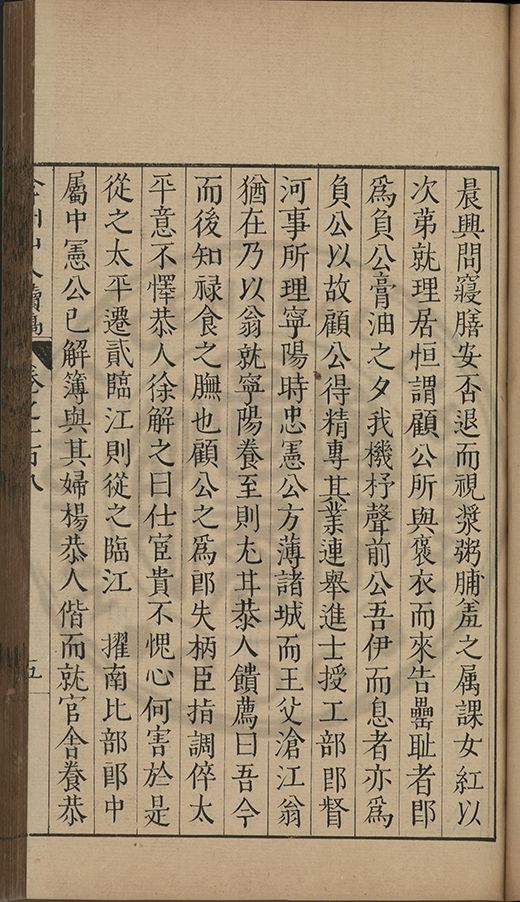 晨興問寢膳安否退而視漿粥脯羞之属課女紅以
次弟就理居恒謂顧公所與褒衣而來告罍耻者郎
為負公膏油之夕我機杼聲前公吾伊而息者亦為
負公以故顧公得精專其業連舉進士授工部郎督
河事所理寧陽時忠憲公方薄諸城而王父滄江翁
猶在乃以翁就寧陽養至則尤甘恭人饋薦曰吾今
而後知禄食之膴也顧公之為郎失柄臣指調倅太
平意不懌恭人徐解之曰仕宦貴不愧心何害於是
從之太平遷貳臨江則從之臨江　擢南比部郎中
屬中憲公已解簿與其婦楊恭人偕而就官舍養恭
五